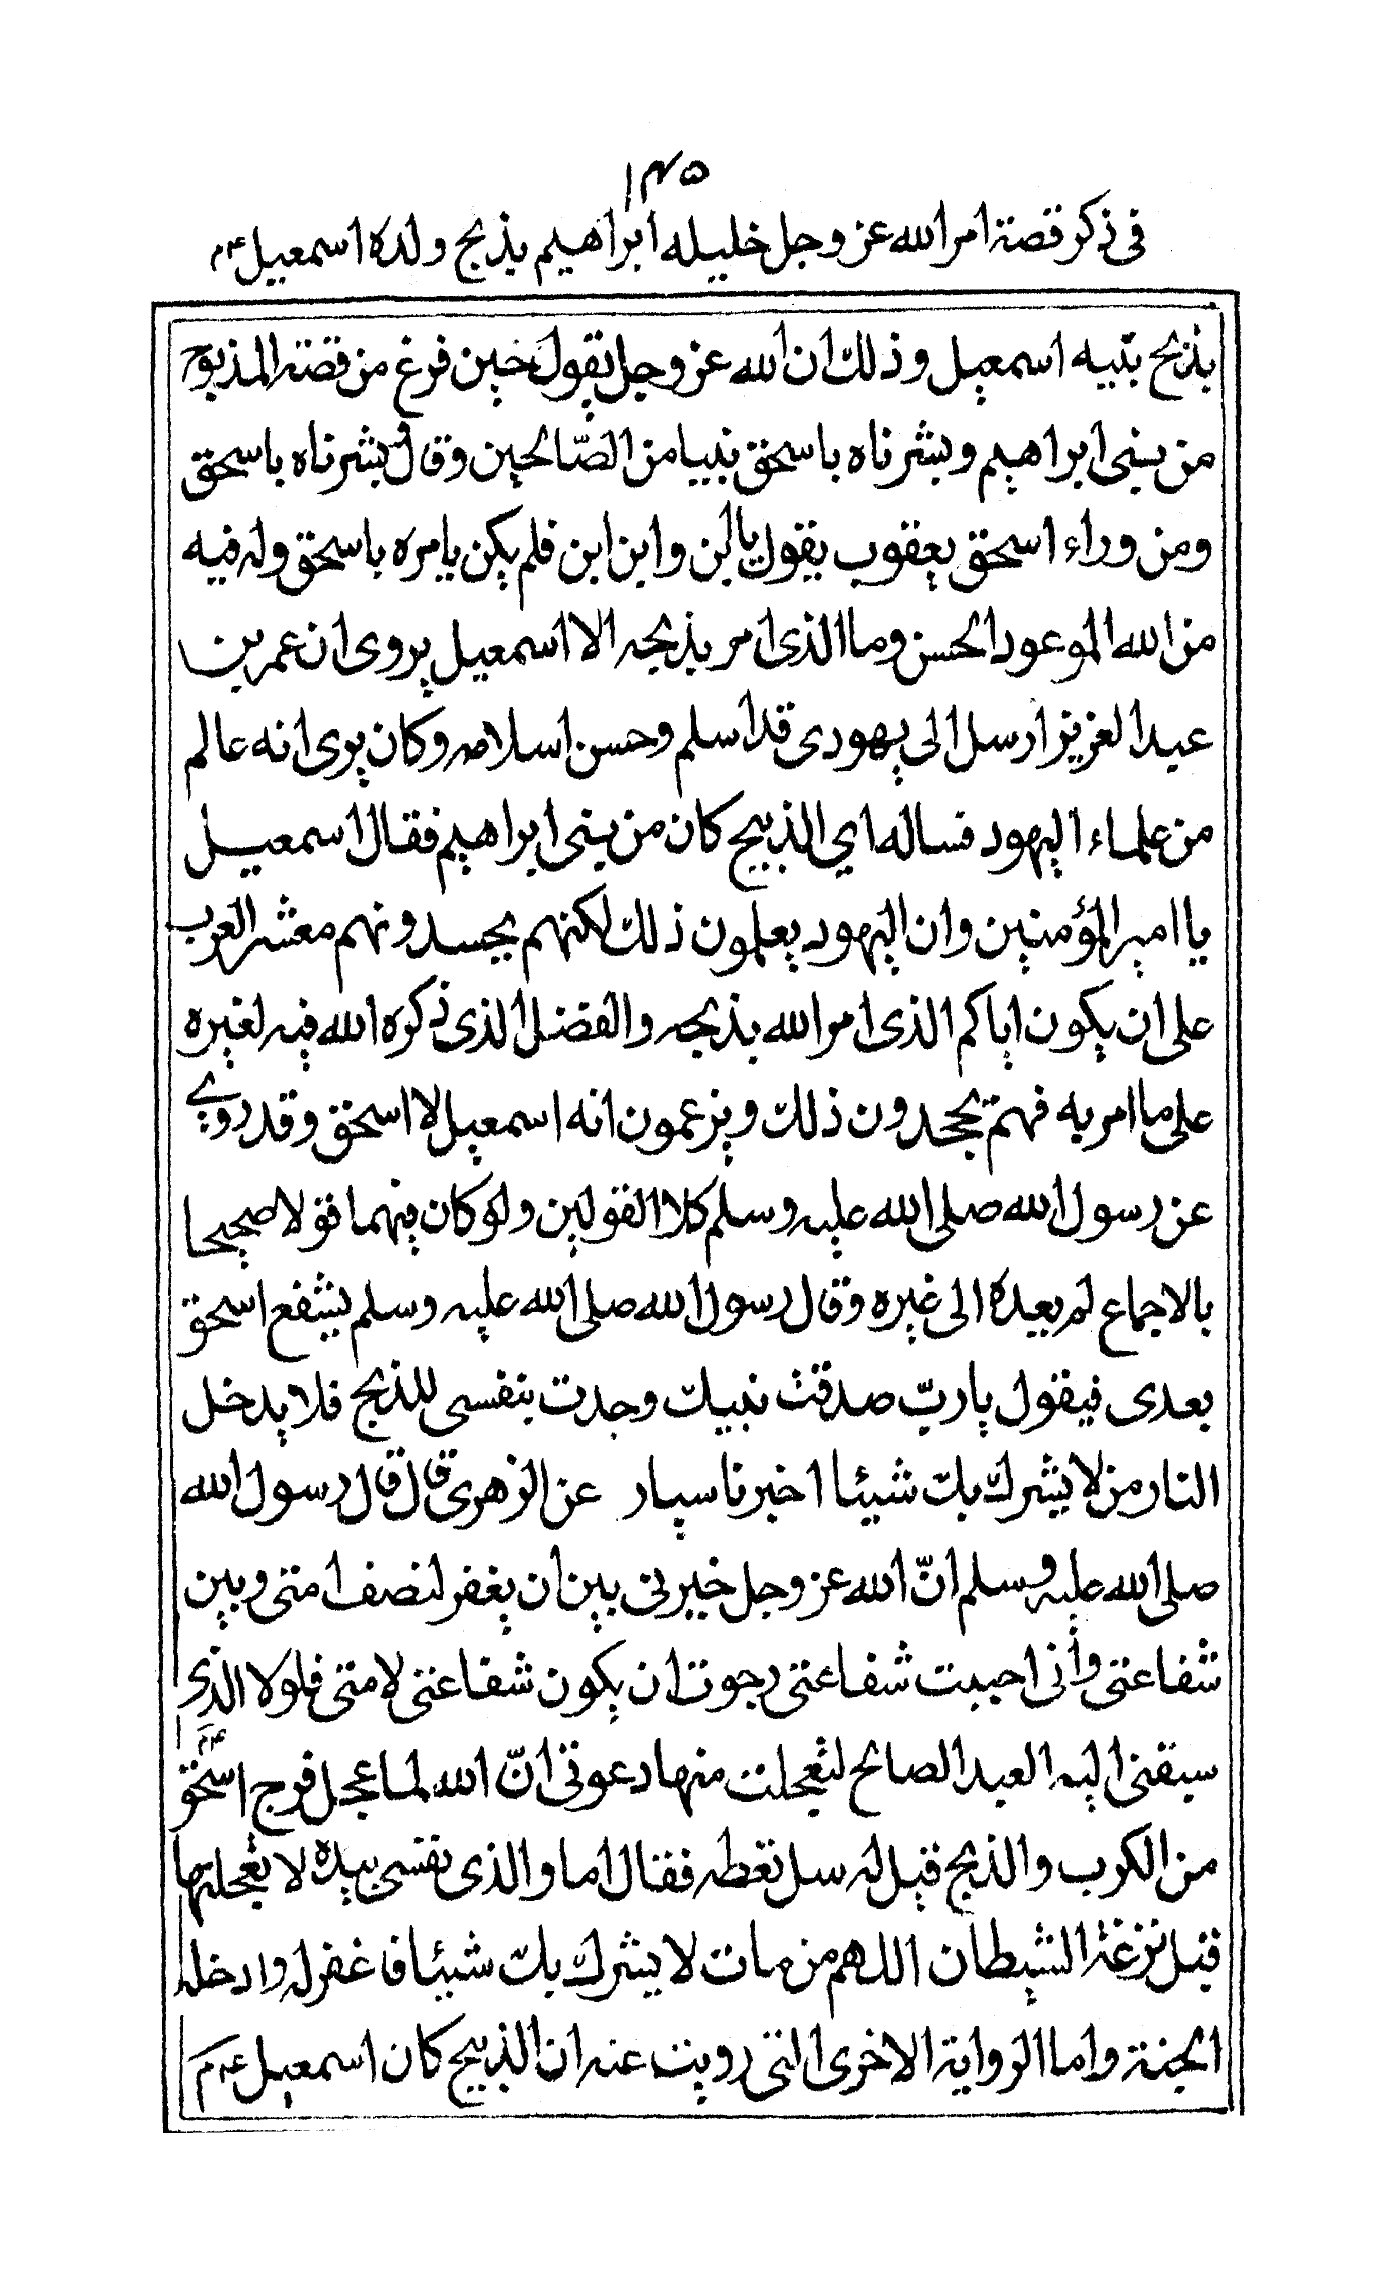 ١٣٥
فى ذكر قصة امر الله عز وجل خليله ابراهيم بذبح ولده اسمعيل عم
بذبح بنيه اسمعيل وذلك ان الله عز وجل يقول حين فرغ من قصة المذبوح
من بنى ابراهيم وبشرناه باسحق نبيا من الصّالحين وقال وبشرناه باسحق
ومن وراء اسحق يعقوب يقول يا لبن وابن ابن فلم يكن يامره باسحق وله فيه
من الله الموعود الحسن وما الذى امر بذبحه الا اسمعيل يروى ان عمر بن
عبد العزيز ارسل الى يهودى قد اسلم وحسن اسلامه وكان يرى انه عالم
من علماء اليهود فساله اي الذبيح كان من بنى ابراهيم فقال اسمعيل
يا امير المؤمنين وان اليهود يعلمون ذلك لكنهم يحسدونهم معشر العرب
على ان يكون اباكم الذى امر الله بذبحه والفضل الذى ذكره الله فيه لغيره
على ما امر به فهم يجحدون ذلك ويزعمون انه اسمعيل لا اسحق وقد روي
عن رسول الله صلى الله عليه وسلم كلا القولين ولو كان فيهما قولا صحيحا
بالاجماع لم يعده الى غيره وقال رسول الله صلى الله عليه وسلم يشفع اسحق
بعدى فيقول يا ربّ صدقت نبيك وجدت بنفسى للذبح فلا يدخل
النار من لا يشرك بك شيئا اخبرنا سيار عن الزهرى قال قال رسول الله
صلى الله عليه وسلم انّ الله عز وجل خيرنى بين ان يغفر لنصف امتى وبين
شفاعتى وانى احببت شفاعتى رجوت ان يكون شفاعتى لامتى فلولا الذى
سبقنى اليه العبد الصالح لتعجلت منها دعوتى انّ الله لما عجل فرج اسحق عم
من الكرب والذبح قيل له سل تعطه فقال اما والذى نفسى بيده لا تعجلنها
قبل نزغة الشيطان اللهم من مات لا يشرك بك شيئا فاغفر له وادخله
الجنة واما الرواية الاخرى التى رويت عنه ان الذبيح كان اسمعيل عم